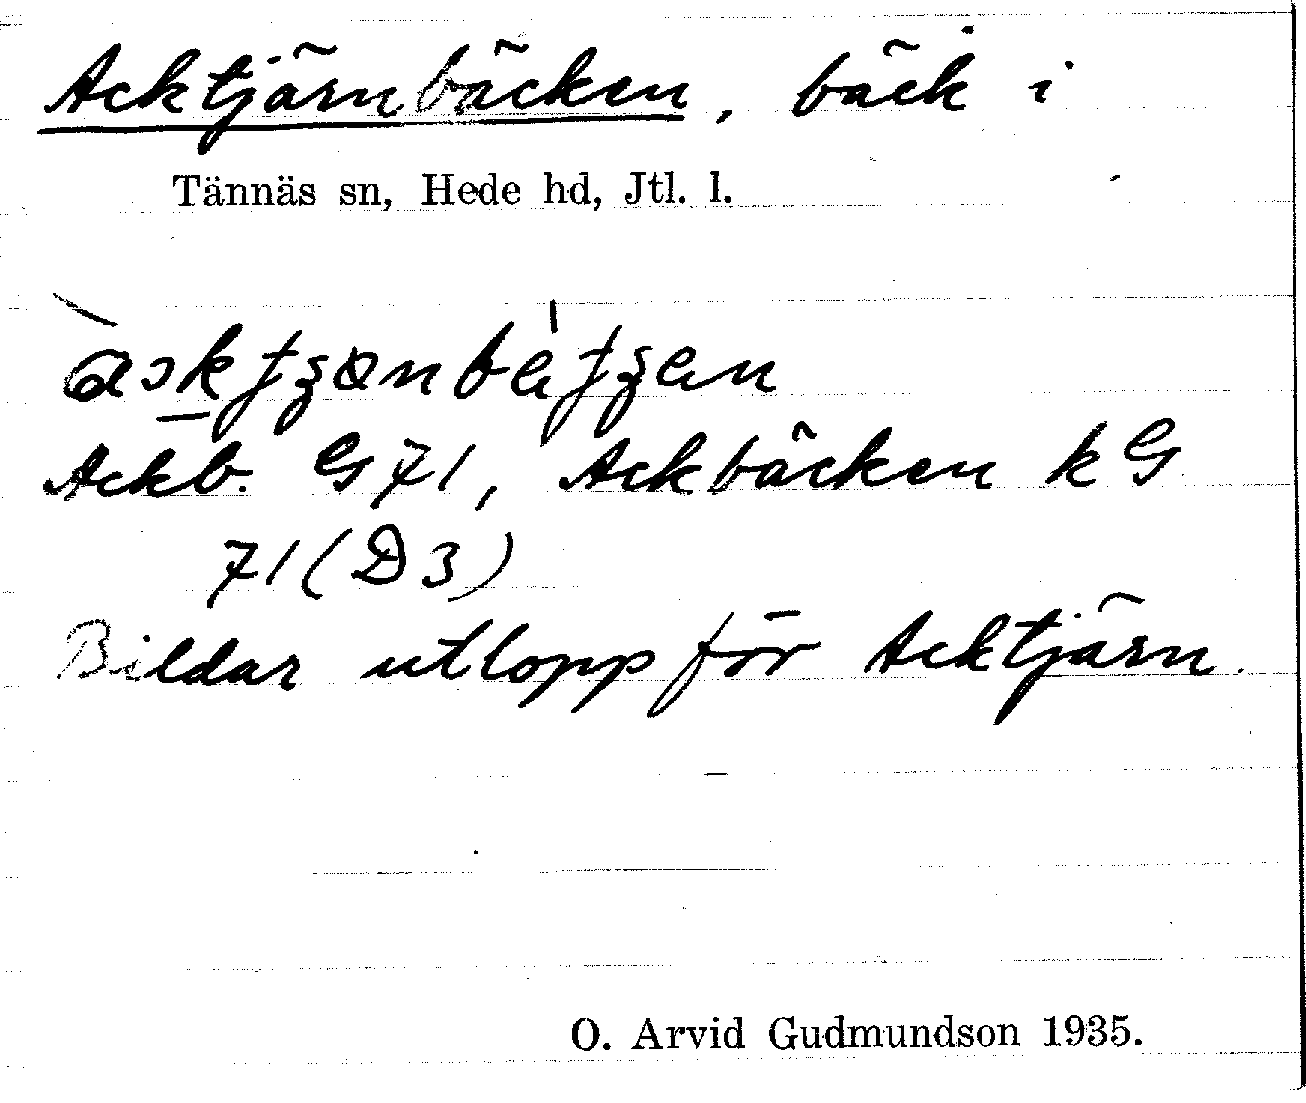 Acktjärnbäcken, bäck i
Tännäs sn, Hede hd, Jtl. l.
Ackb. G 71, Ackbäcken k G
71 (D3)
Bildar utlopp för Acktjärn.
O. Arvid Gudmundson 1935.